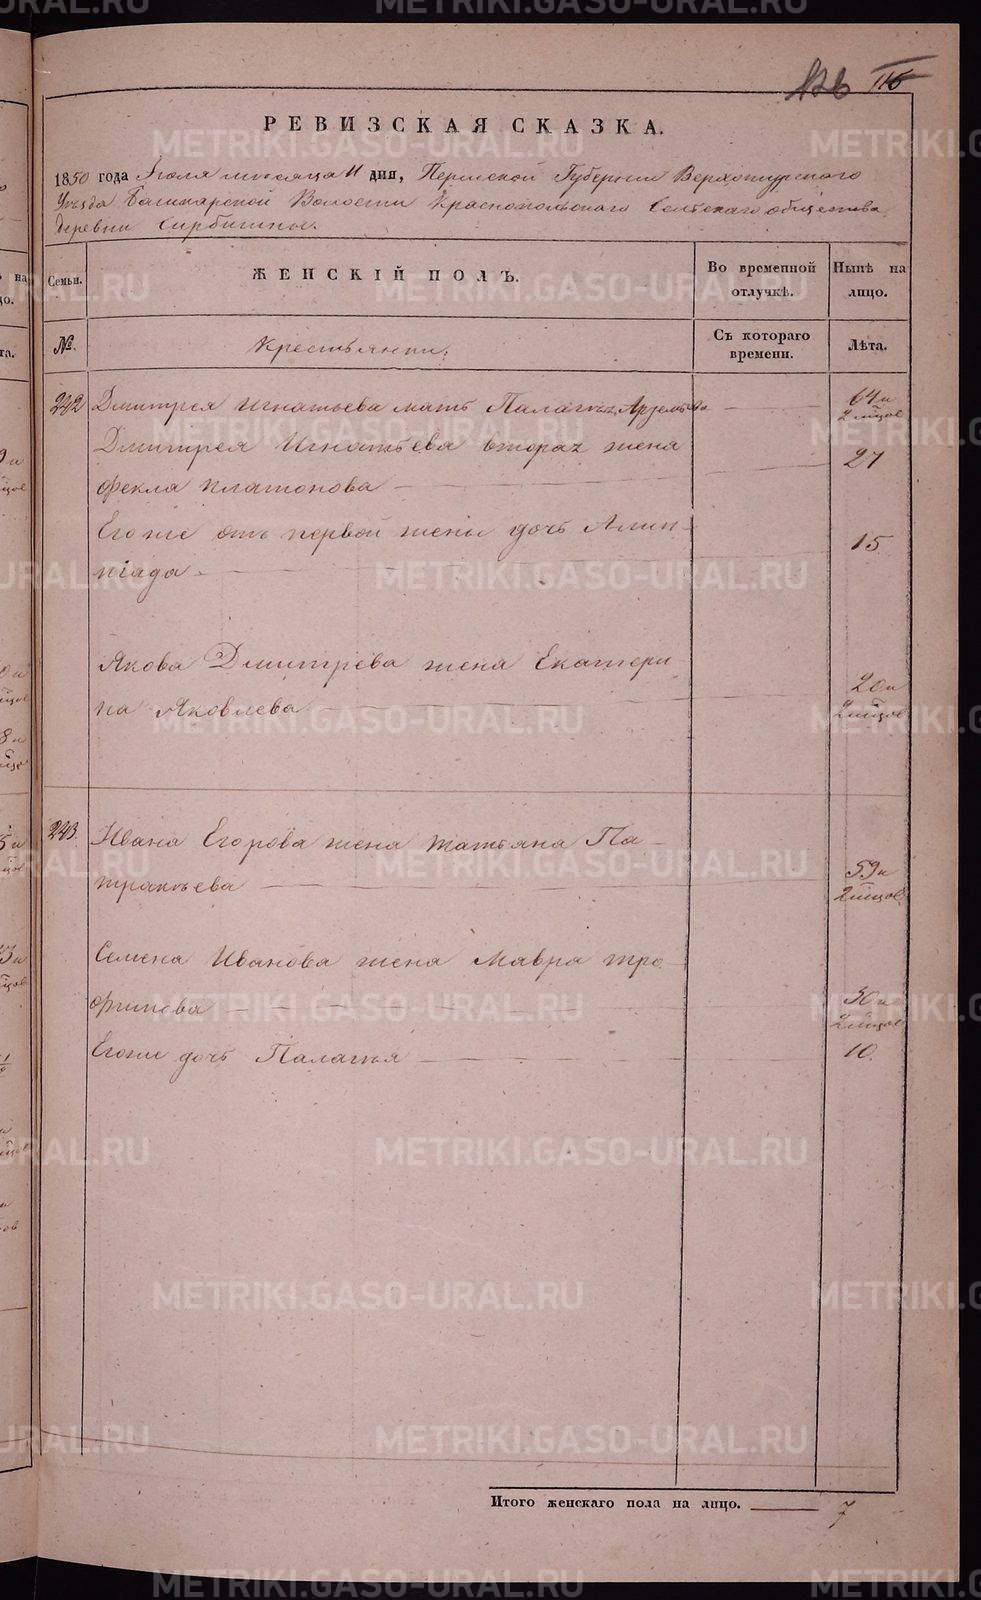 126 116
РЕВИЗСКАЯ СКАЗКА.
1850 года Июля месяца 11 дня, Пермской Губернии Верхотурскаго
Уезда Башкарской Волости Краснопольскаго Сельскаго общества
деревни
Семьи.
ЖЕНСКІЙ ПОЛЪ.
Во временной отлучкѣ.
Нынѣ на лицо.
№.
Крестьянки:
Съ котораго времени.
Лѣта.
242 Дмитрея Игнатьева мать Палагья 64 и
2 мѣцов
Дмитрея Игнатьева вторая жена
Фекла Платонова 27
Его же отъ первой жены дочь Алим-
піада 15
Якова Дмитрева жена Екатери
на Яковлева 20 и
2 мѣцов
243. Ивана Егорова жена Татьяна Па-
тракѣева 59 и
2 мѣцов
Семена Иванова жена Мавра Тро
фимова 30 и
2 мѣцов
Его же дочь Палагья 10.
Итого женскаго пола на лицо. 7
METRIKI.GASO-URAL.RU